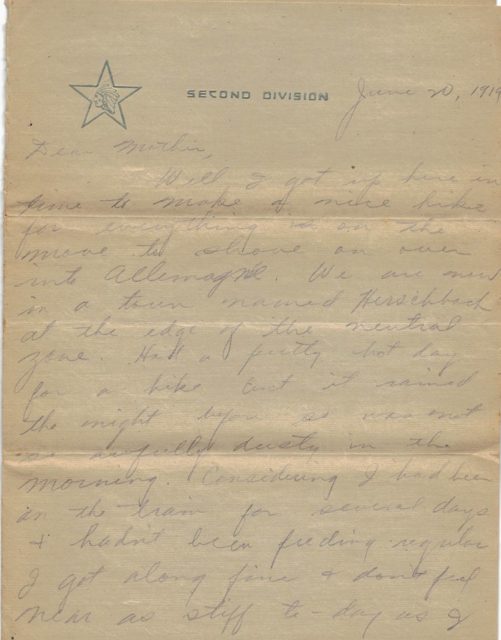 SECOND DIVISION
June 20, 1919
Dear Mother,
Well I got up here in
time to make a nice hike
for everything is on the
move to shove on over
into Allemagne. We are now
in a town named Herschbach
at the edge of the neutral
zone. Had a pretty hot day
for a hike but it rained
the night before so was not
so awfully dusty in the
morning. Considering I had been
on the train for several days
& hadn't been feeding regular
I got along fine & don't feel
near as stiff to-day as I